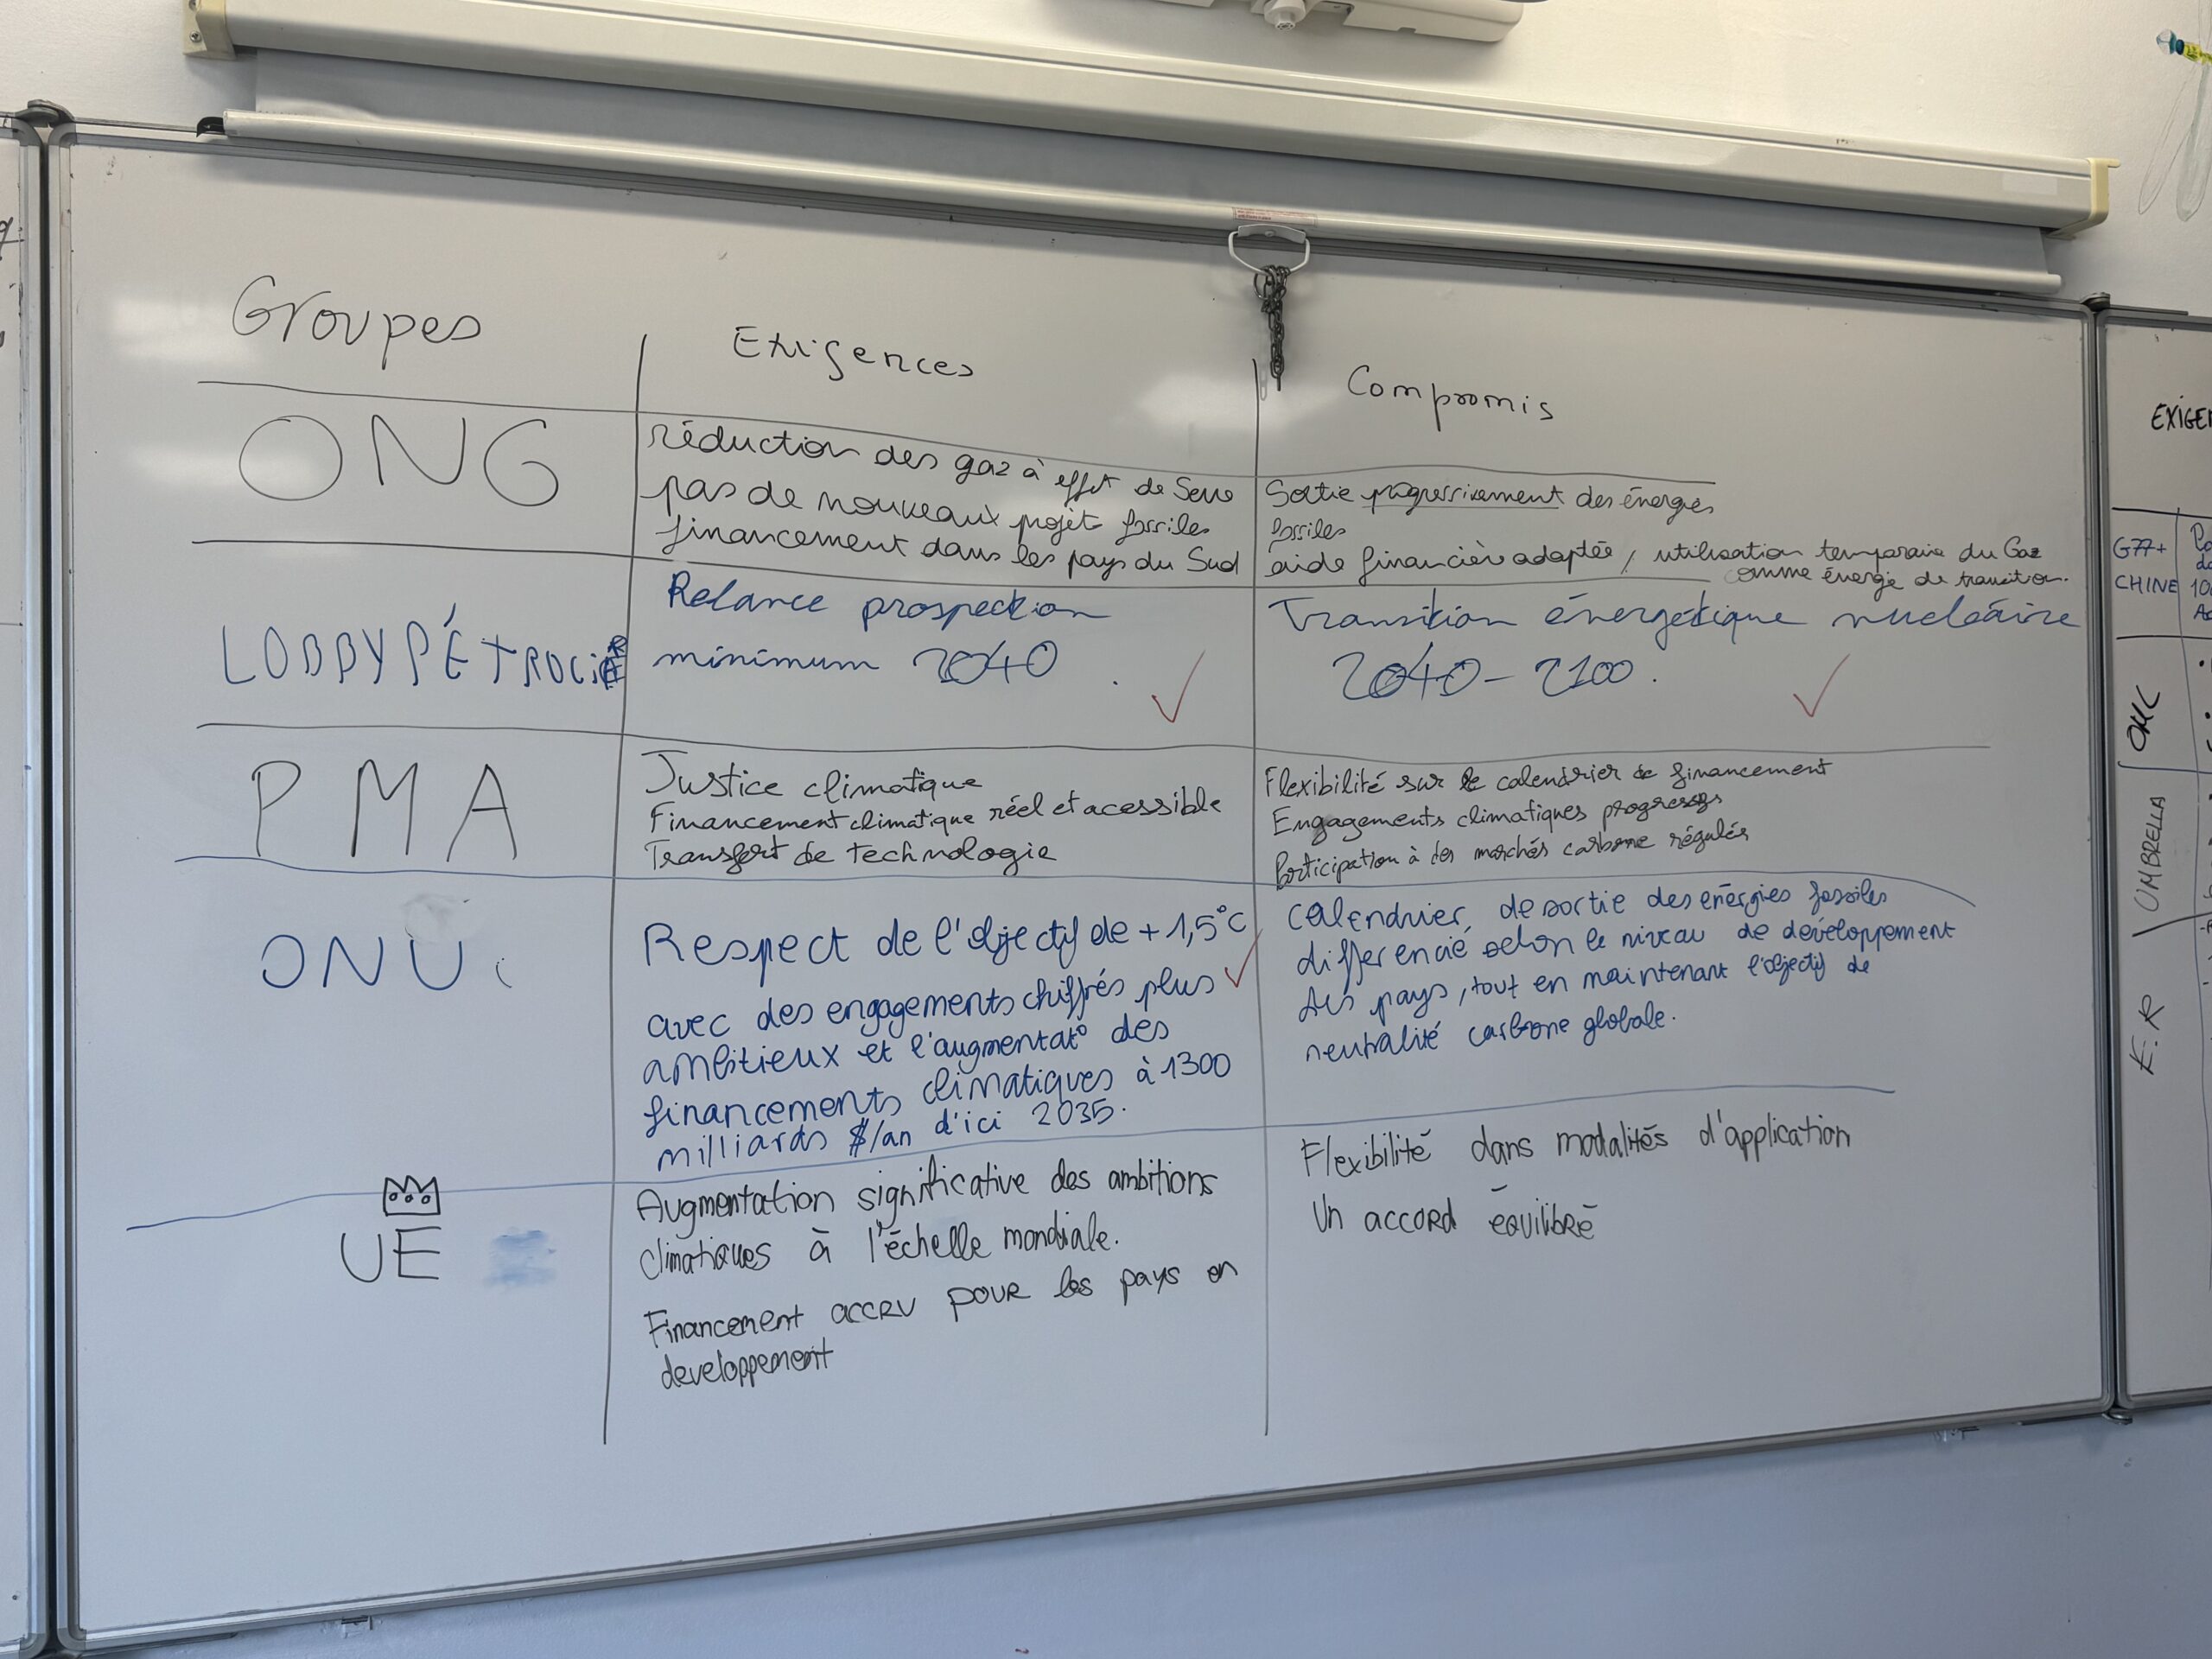 Groupes
Exigences
Compromis
ONG
réduction des gaz à effet de Serre
pas de nouveaux projet fossiles
financement dans les pays du Sud
Sortie progressivement des énergies
fossiles
aide financière adaptée, utilisation temporaire du Gaz
comme énergie de transition.
LOBBY PÉTROLIER
Relance prospection
minimum 2040
Transition énergétique nucléaire
2040-2100.
PMA
Justice climatique
Financement climatique réel et acessible
Transfert de technologie
Flexibilité sur le calendrier de financement
Engagements climatiques progressifs
Participation à des marchés carbone régulés
ONU
Respect de l'objectif de +1,5°C
avec des engagements chiffrés plus
ambitieux et l'augmentat° des
financements climatiques à 1300
milliards $/an d'ici 2035.
calendrier de sortie des énergies fossiles
differencié selon le niveau de développement
des pays, tout en maintenant l'objectif de
neutralité carbone globale.
UE
Augmentation significative des ambitions
climatiques à l'échelle mondiale.
Financement accru pour les pays en
developpement
Flexibilité dans modalités d'application
Un accord équilibré
EXIGEN
G77+
CHINE
10
OMC
UMBRELLA
E.R